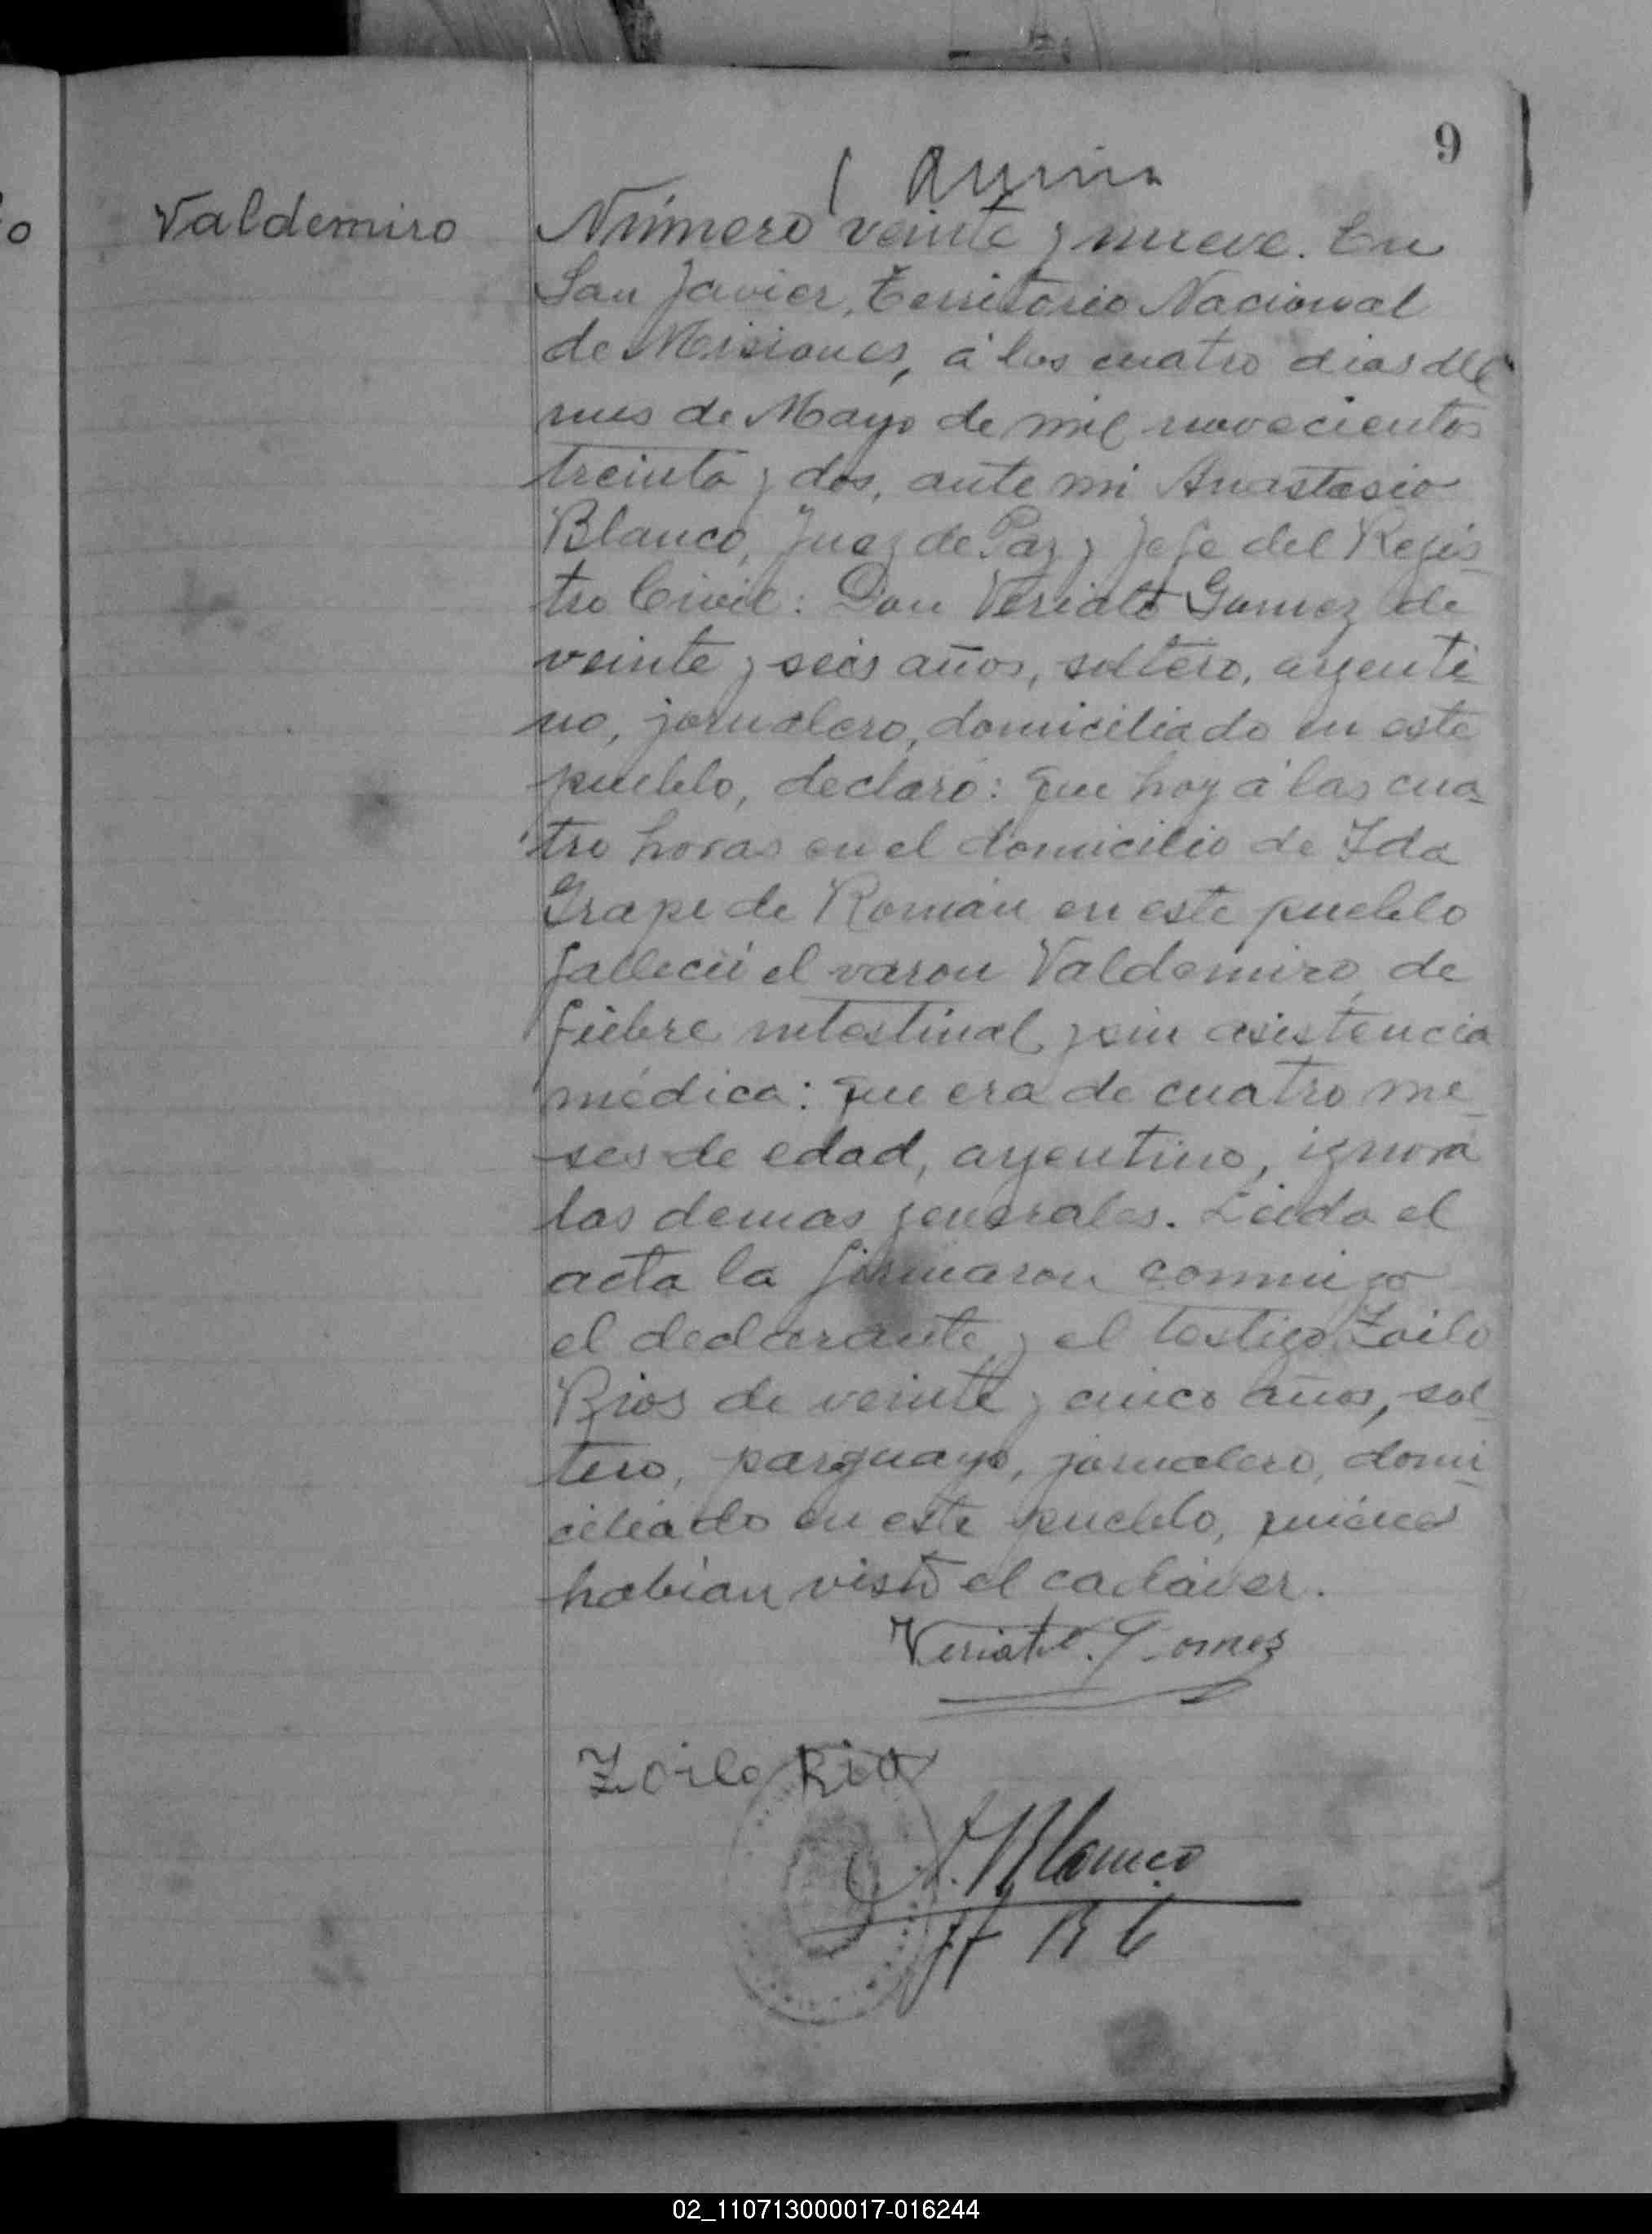 9
Valdemiro
Número veinte y nueve. En
San Javier, Territorio Nacional
de Misiones, á los cuatro dias del
mes de Mayo de mil novecientos
treinta y dos, ante mi Anastasio
Blanco, Juez de Paz y Jefe del Regis-
tro Civil: Don Veriato Gomez de
veinte y seis años, soltero, argenti-
no, jornalero, domiciliado en este
pueblo, declaró: que hoy á las cua-
tro horas en el domicilio de Ida
Grape de Román en este pueblo
falleció el varon Valdemiro de
fiebre intestinal y sin asistencia
médica: que era de cuatro me-
ses de edad, argentino, ignora
las demas generales. Leida el
acta la firmaron conmigo
el declarante y el testigo Zoilo
Rios de veinte y cinco años, sol-
tero, parguayo, jornalero, domi-
ciliado en este pueblo, quienes
habian visto el cadáver.
Veriato Gomez
Zoilo Rios
A. Blanco
02_110713000017-016244